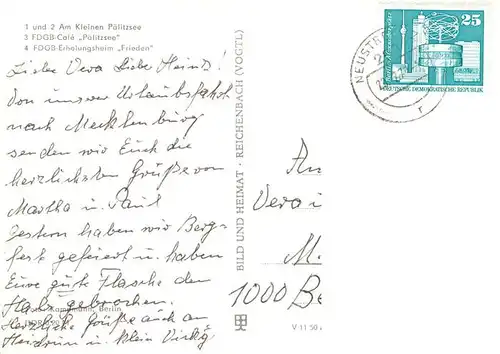 1 und 2 Am Kleinen Pälitzsee
3 FDGB-Café „Pälitzsee"
4 FDGB-Erholungsheim „Frieden"
Liebe Vera Liebe Heinz!
Von unsrer Urlaubsfahrt
nach Mecklenburg
senden wir Euch die
herzlichsten Grüße von
Martha u. Paul
Gestern haben wir Berg-
fest gefeiert u. haben
Eure gute Flasche den
Hals gebrochen.
Herzliche Grüße auch an
Heidrun u. klein
BILD UND HEIMAT · REICHENBACH (VOGTL)
NEUSTR
25
DEUTSCHE DEMOKRATISCHE REPUBLIK
An
Vera
M.
1000 Be
V 11 50